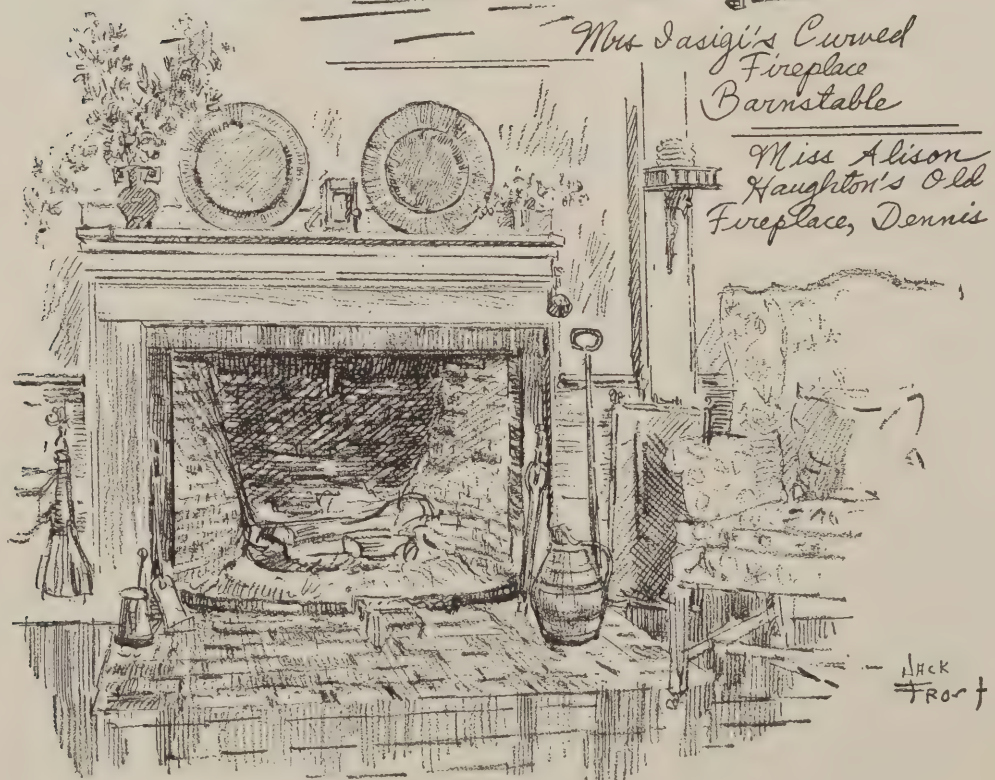 Mrs Iasigi's Curved
Fireplace
Barnstable
Miss Alison
Haughton's Old
Fireplace, Dennis
JACK
FROST